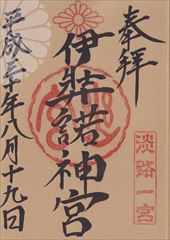 奉拝
淡路一宮
伊弉諾神宮
平成三十年八月十九日